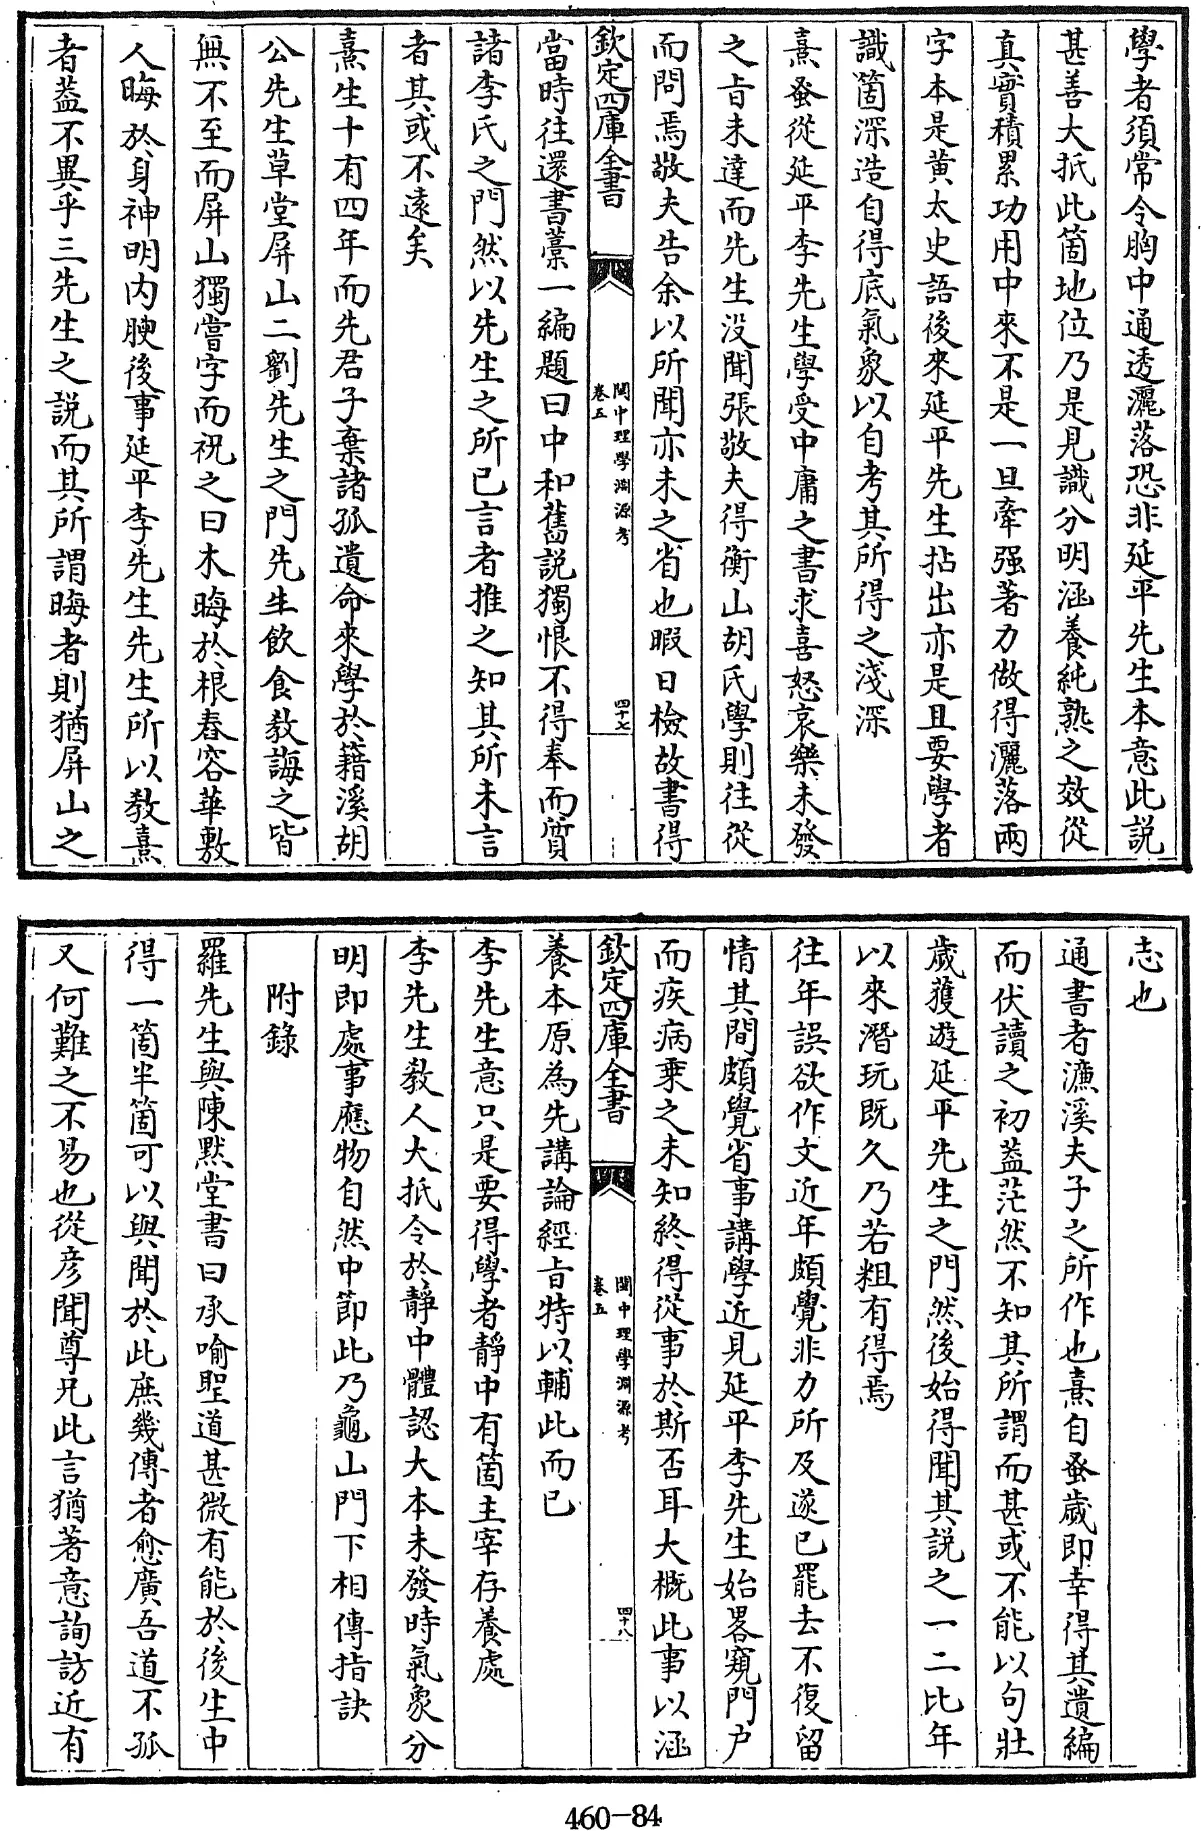 學者須常令胸中通透灑落恐非延平先生本意此説
甚善大抵此箇地位乃是見識分明涵養純熟之效從
真實積累功用中來不是一旦牽强著力做得灑落兩
字本是黄太史語後來延平先生拈出亦是且要學者
識箇深造自得底氣象以自考其所得之淺深
熹蚤從延平李先生學受中庸之書求喜怒哀樂未發
之旨未達而先生没聞張敬夫得衡山胡氏學則往從
而問焉敬夫告余以所聞亦未之省也暇日檢故書得
欽定四庫全書
閩中理學淵源考
卷五
四十七
當時往還書藁一編題曰中和舊説獨恨不得奉而質
諸李氏之門然以先生之所已言者推之知其所未言
者其或不遠矣
熹生十有四年而先君子棄諸孤遺命來學於籍溪胡
公先生草堂屏山二劉先生之門先生飲食教誨之皆
無不至而屏山獨嘗字而祝之曰木晦於根春容華敷
人晦於身神明内腴後事延平李先生先生所以教熹
者葢不異乎三先生之説而其所謂晦者則猶屏山之
志也
通書者濂溪夫子之所作也熹自蚤歲即幸得其遺編
而伏讀之初葢茫然不知其所謂而甚或不能以句壯
歲獲遊延平先生之門然後始得聞其説之一二比年
以來潛玩既久乃若粗有得焉
往年誤欲作文近年頗覺非力所及遂已罷去不復留
情其間頗覺省事講學近見延平李先生始畧窺門户
而疾病乗之未知終得從事於斯否耳大概此事以涵
欽定四庫全書
閩中理學淵源考
卷五
四十八
養本原為先講論經旨特以輔此而已
李先生意只是要得學者静中有箇主宰存養處
李先生教人大抵令於靜中體認大本未發時氣象分
明即處事應物自然中節此乃龜山門下相傳指訣
附錄
羅先生與陳默堂書曰承喻聖道甚微有能於後生中
得一箇半箇可以與聞於此庶幾傳者愈廣吾道不孤
又何難之不易也從彦聞尊兄此言猶著意詢訪近有
460-84